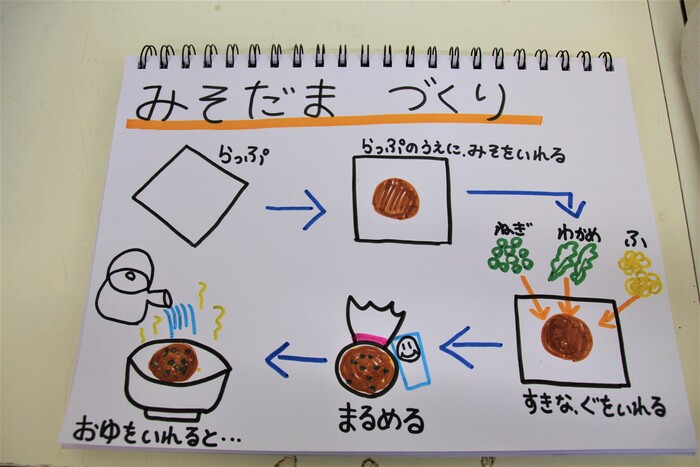 みそだま づくり
らっぷ
らっぷのうえに、みそをいれる
ねぎ
わかめ
ふ
すきな、ぐをいれる
まるめる
おゆをいれると…